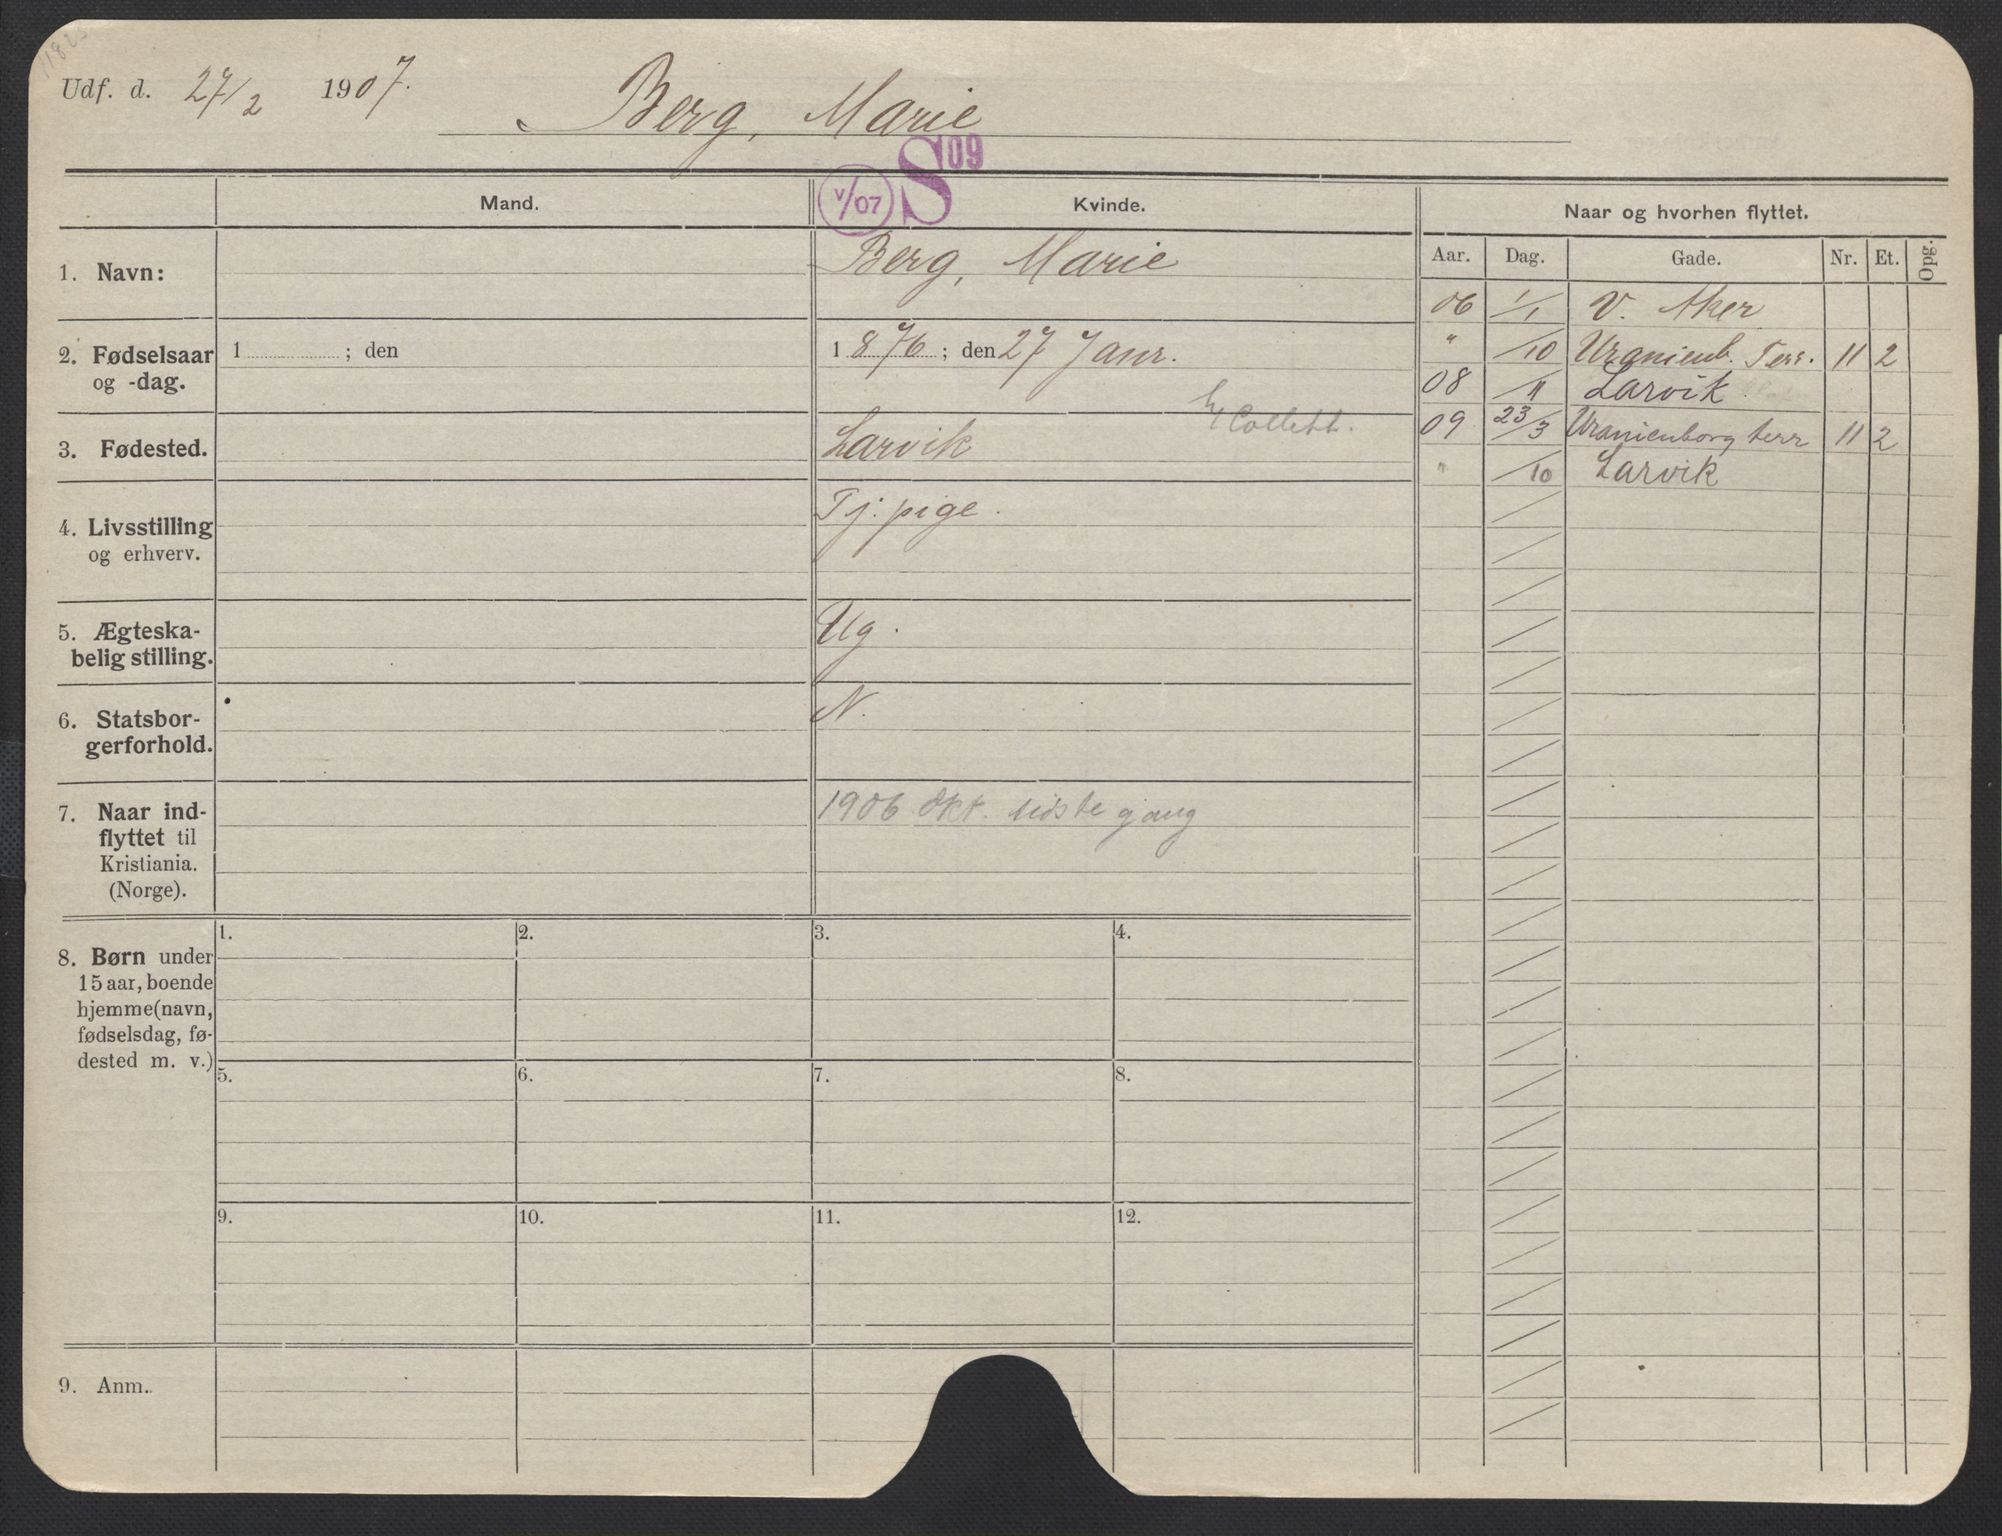 Udf. d. 27/2 1907. Berg, Marie
Mand.
Kvinde.
V/07
S 09
Naar og hvorhen flyttet.
Aar. Dag. Gade. Nr. Et. Opg.
1. Navn:
Berg, Marie
2. Fødselsaar
og -dag.
1 ; den
1876 ; den 27 Janr.
3. Fødested.
Larvik
Collett.
4. Livsstilling
og erhverv.
Tj. pige.
5. Ægteska-
belig stilling.
Ug.
6. Statsbor-
gerforhold.
N.
7. Naar ind-
flyttet til
Kristiania.
(Norge).
1906 Okt. sidste gang
8. Børn under
15 aar, boende
hjemme (navn,
fødselsdag, fø-
dested m. v.)
1. 2. 3. 4.
5. 6. 7. 8.
9. 10. 11. 12.
9. Anm.
06 1/1 V. Aker
" /10 Uranienb. Terr. 11 2
08 /11 Larvik
09 23/3 Uranienborg terr 11 2
" /10 Larvik